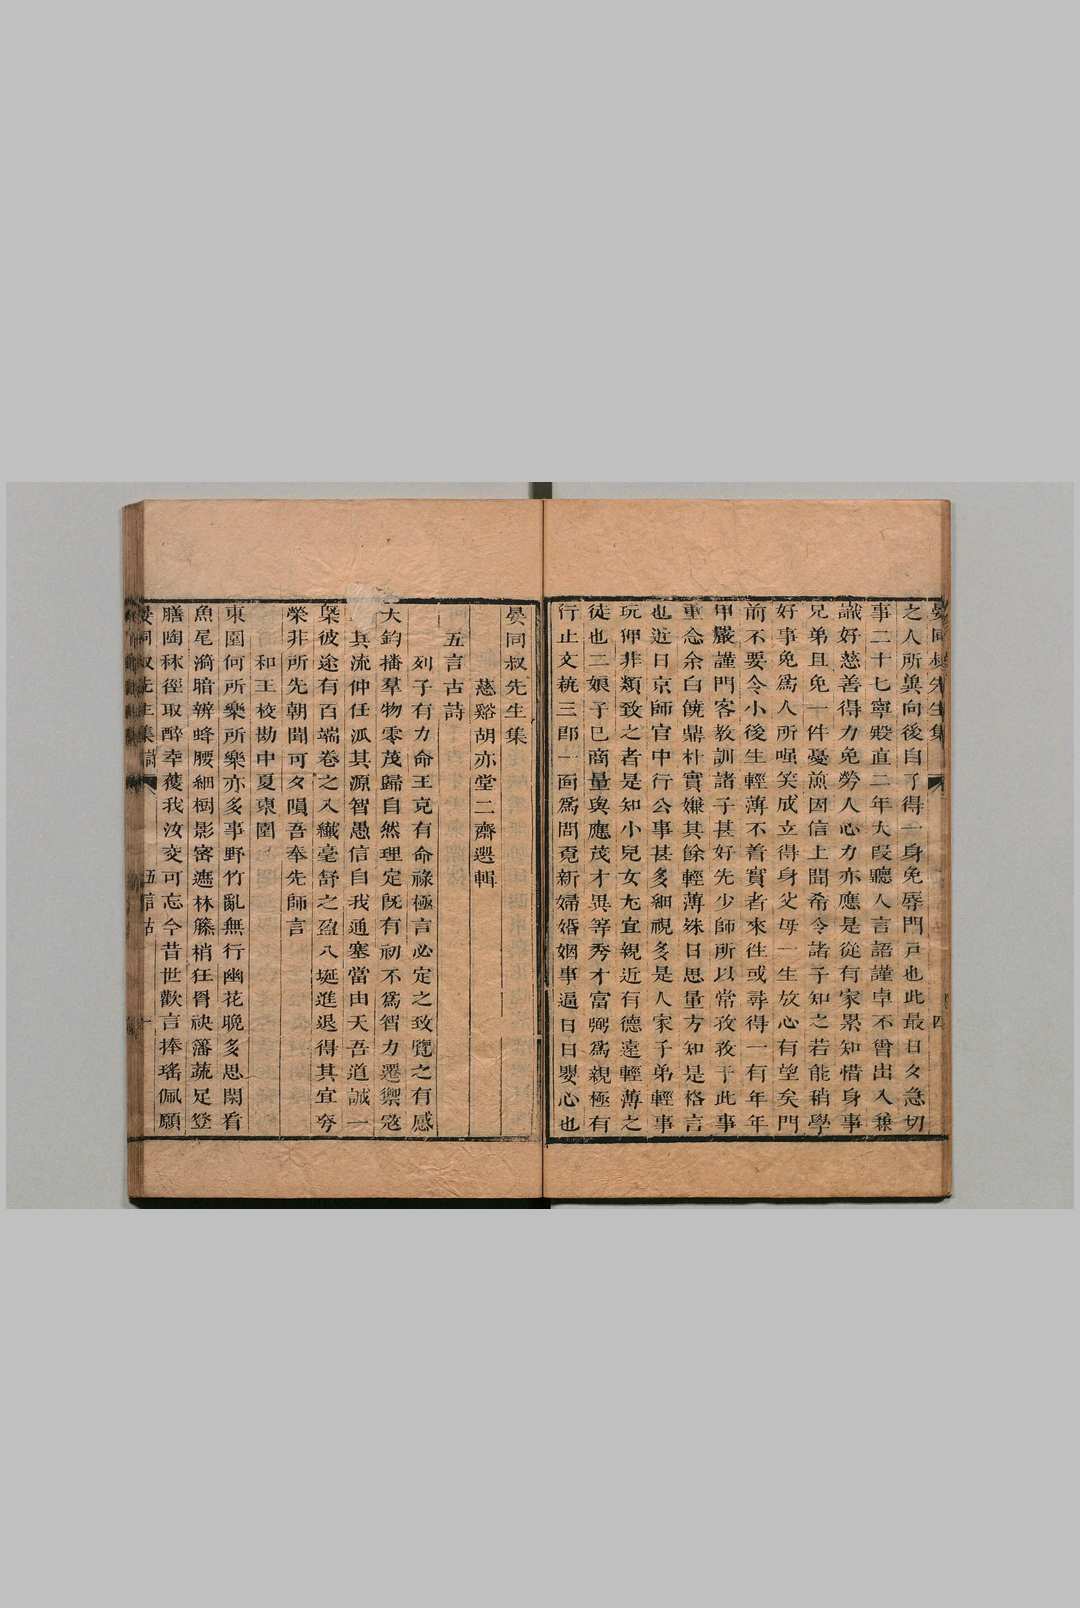 之人所與向後自了得一身免辱門戸也此最日夕急切
事二十七寧殿直二年大段聽人言語謹卓不曾出入兼
識好慈善得力免勞人心力亦應是從有家累知惜身事
兄弟且免一件憂煎因信上聞希令諸子知之若能稍學
好事免爲人所嗤笑成立得身父母一生放心有望矣門
前不要令小後生輕薄不着實者來徃或尋得一有年年
甲嚴謹門客教訓諸子甚好先少師所以常孜孜于此事
重念余白僥鼎杜實嫌其餘輕薄殊日思量方知是格言
也近日京師官中行公事甚多細視多是人家子弟輕事
玩狎非類致之者是知小兒女尤宜親近有德遠輕薄之
徒也二娘子已商量與應茂才異等秀才富弼爲親極有
行止文藝三郎一面爲問覓新婦婚姻事逼日日嬰心也
晏同叔先生集
慈谿胡亦堂二齋選輯
五言古詩
列子有力命王充有命祿極言必定之致覽之有感
大鈞播羣物零茂歸自然理定旣有初不爲智力遷禦寇
其流仲任泒其源智愚信自我通塞當由天吾道誠一
槩彼途有百端卷之入纖毫舒之盈八埏進退得其宜夸
榮非所先朝聞可夕隕吾奉先師言
和王校勘中夏東園
東園何所樂所樂亦多事野竹亂無行幽花晚多思閑看
魚尾漪暗辨蜂腰細樹影密遮林籐梢狂罥袂籓蔬足登
膳陶秫徑取醉幸獲我汝交可忘今昔世歡言捧瑤佩願